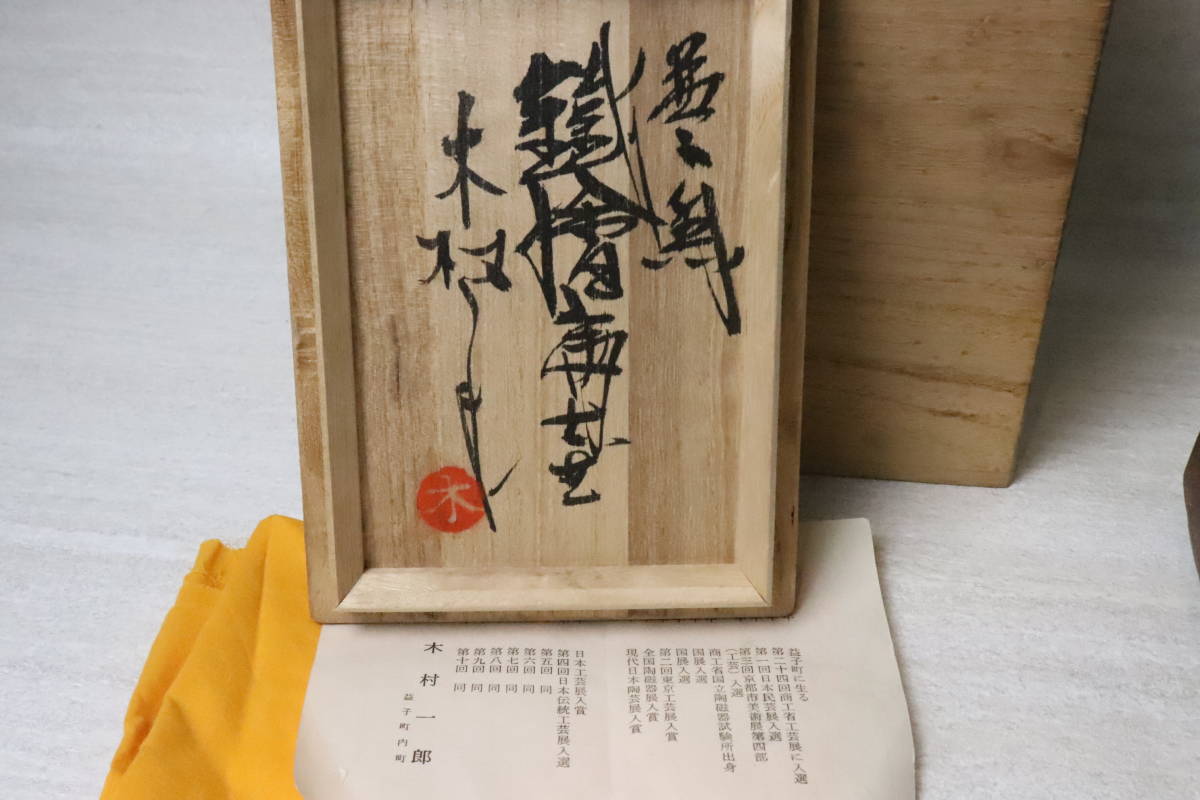 木村一郎
木
益子町に生る
第二十四回商工省工芸展に入選
第一回日本民芸展入選
第三回京都市美術展第四部
(工芸)入選
商工省国立陶磁器試験所出身
国展入選
国展入選
第二回東京工芸展入賞
全国陶磁器展入賞
現代日本陶芸展入賞
日本工芸展入賞
第四回日本伝統工芸展入選
第五回 同
第六回 同
第七回 同
第八回 同
第九回 同
第十回 同
木村一郎
益子町内町